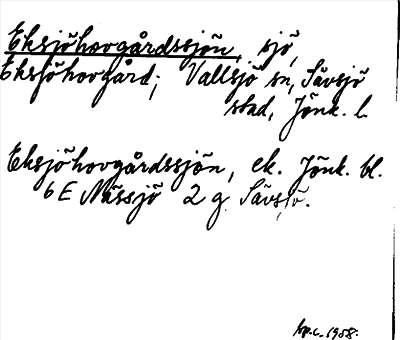 Eksjöhovgårdssjön, sjö,
Eksjöhovgård; Vallsjö sn, Sävsjö
stad, Jönk. l.
Eksjöhovgårdssjön, ek. Jönk. bl.
6 E Nässjö 2 g Sävsjö.
1958.